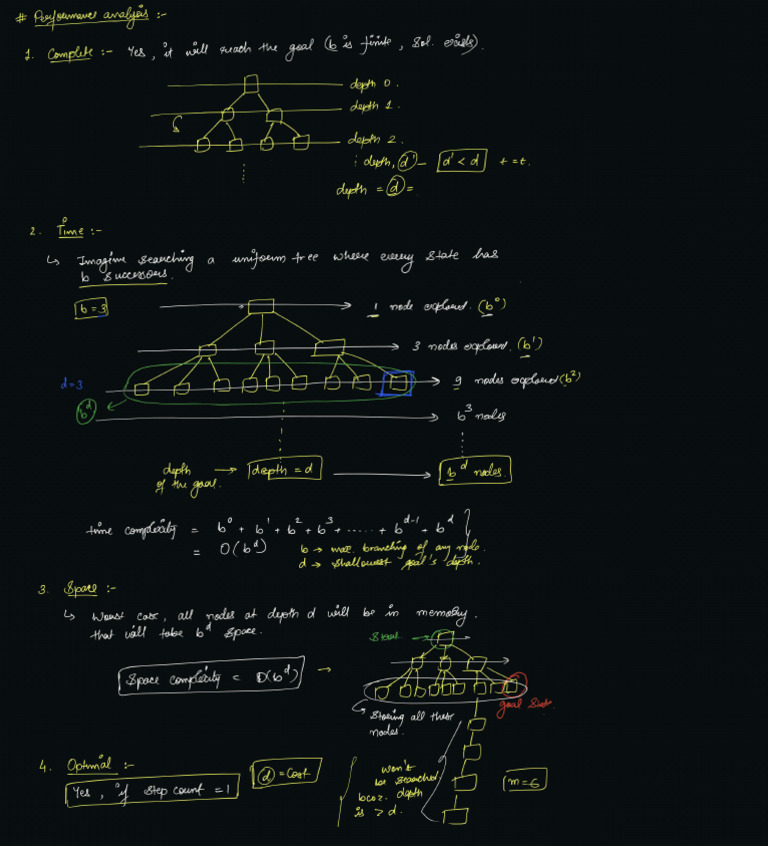 # Performance analysis :-
1. Complete :- Yes, it will reach the goal (b is finite, sol. exists).
depth 0.
depth 1.
depth 2.
: depth, d' - d' < d t = t.
depth = d =
2. Time :-
↳ Imagine searching a uniform tree where every state has
b successors.
b = 3
1 node explored. (b⁰)
3 nodes explored. (b¹)
d=3
9 nodes explored (b²)
b^d
b³ nodes
depth of the goal. → depth = d → b^d nodes.
time complexity = b⁰ + b¹ + b² + b³ + ...... + b^(d-1) + b^d
= O(b^d)
b → max. branching of any node.
d → shallowest goal's depth.
3. Space :-
↳ Worst case, all nodes at depth d will be in memory.
that will take b^d space.
Start →
Space complexity = O(b^d) →
goal State.
Storing all these
nodes.
4. Optimal :-
Yes, if step count = 1
d = cost
won't
be searched
bcoz. depth
is > d.
m=6